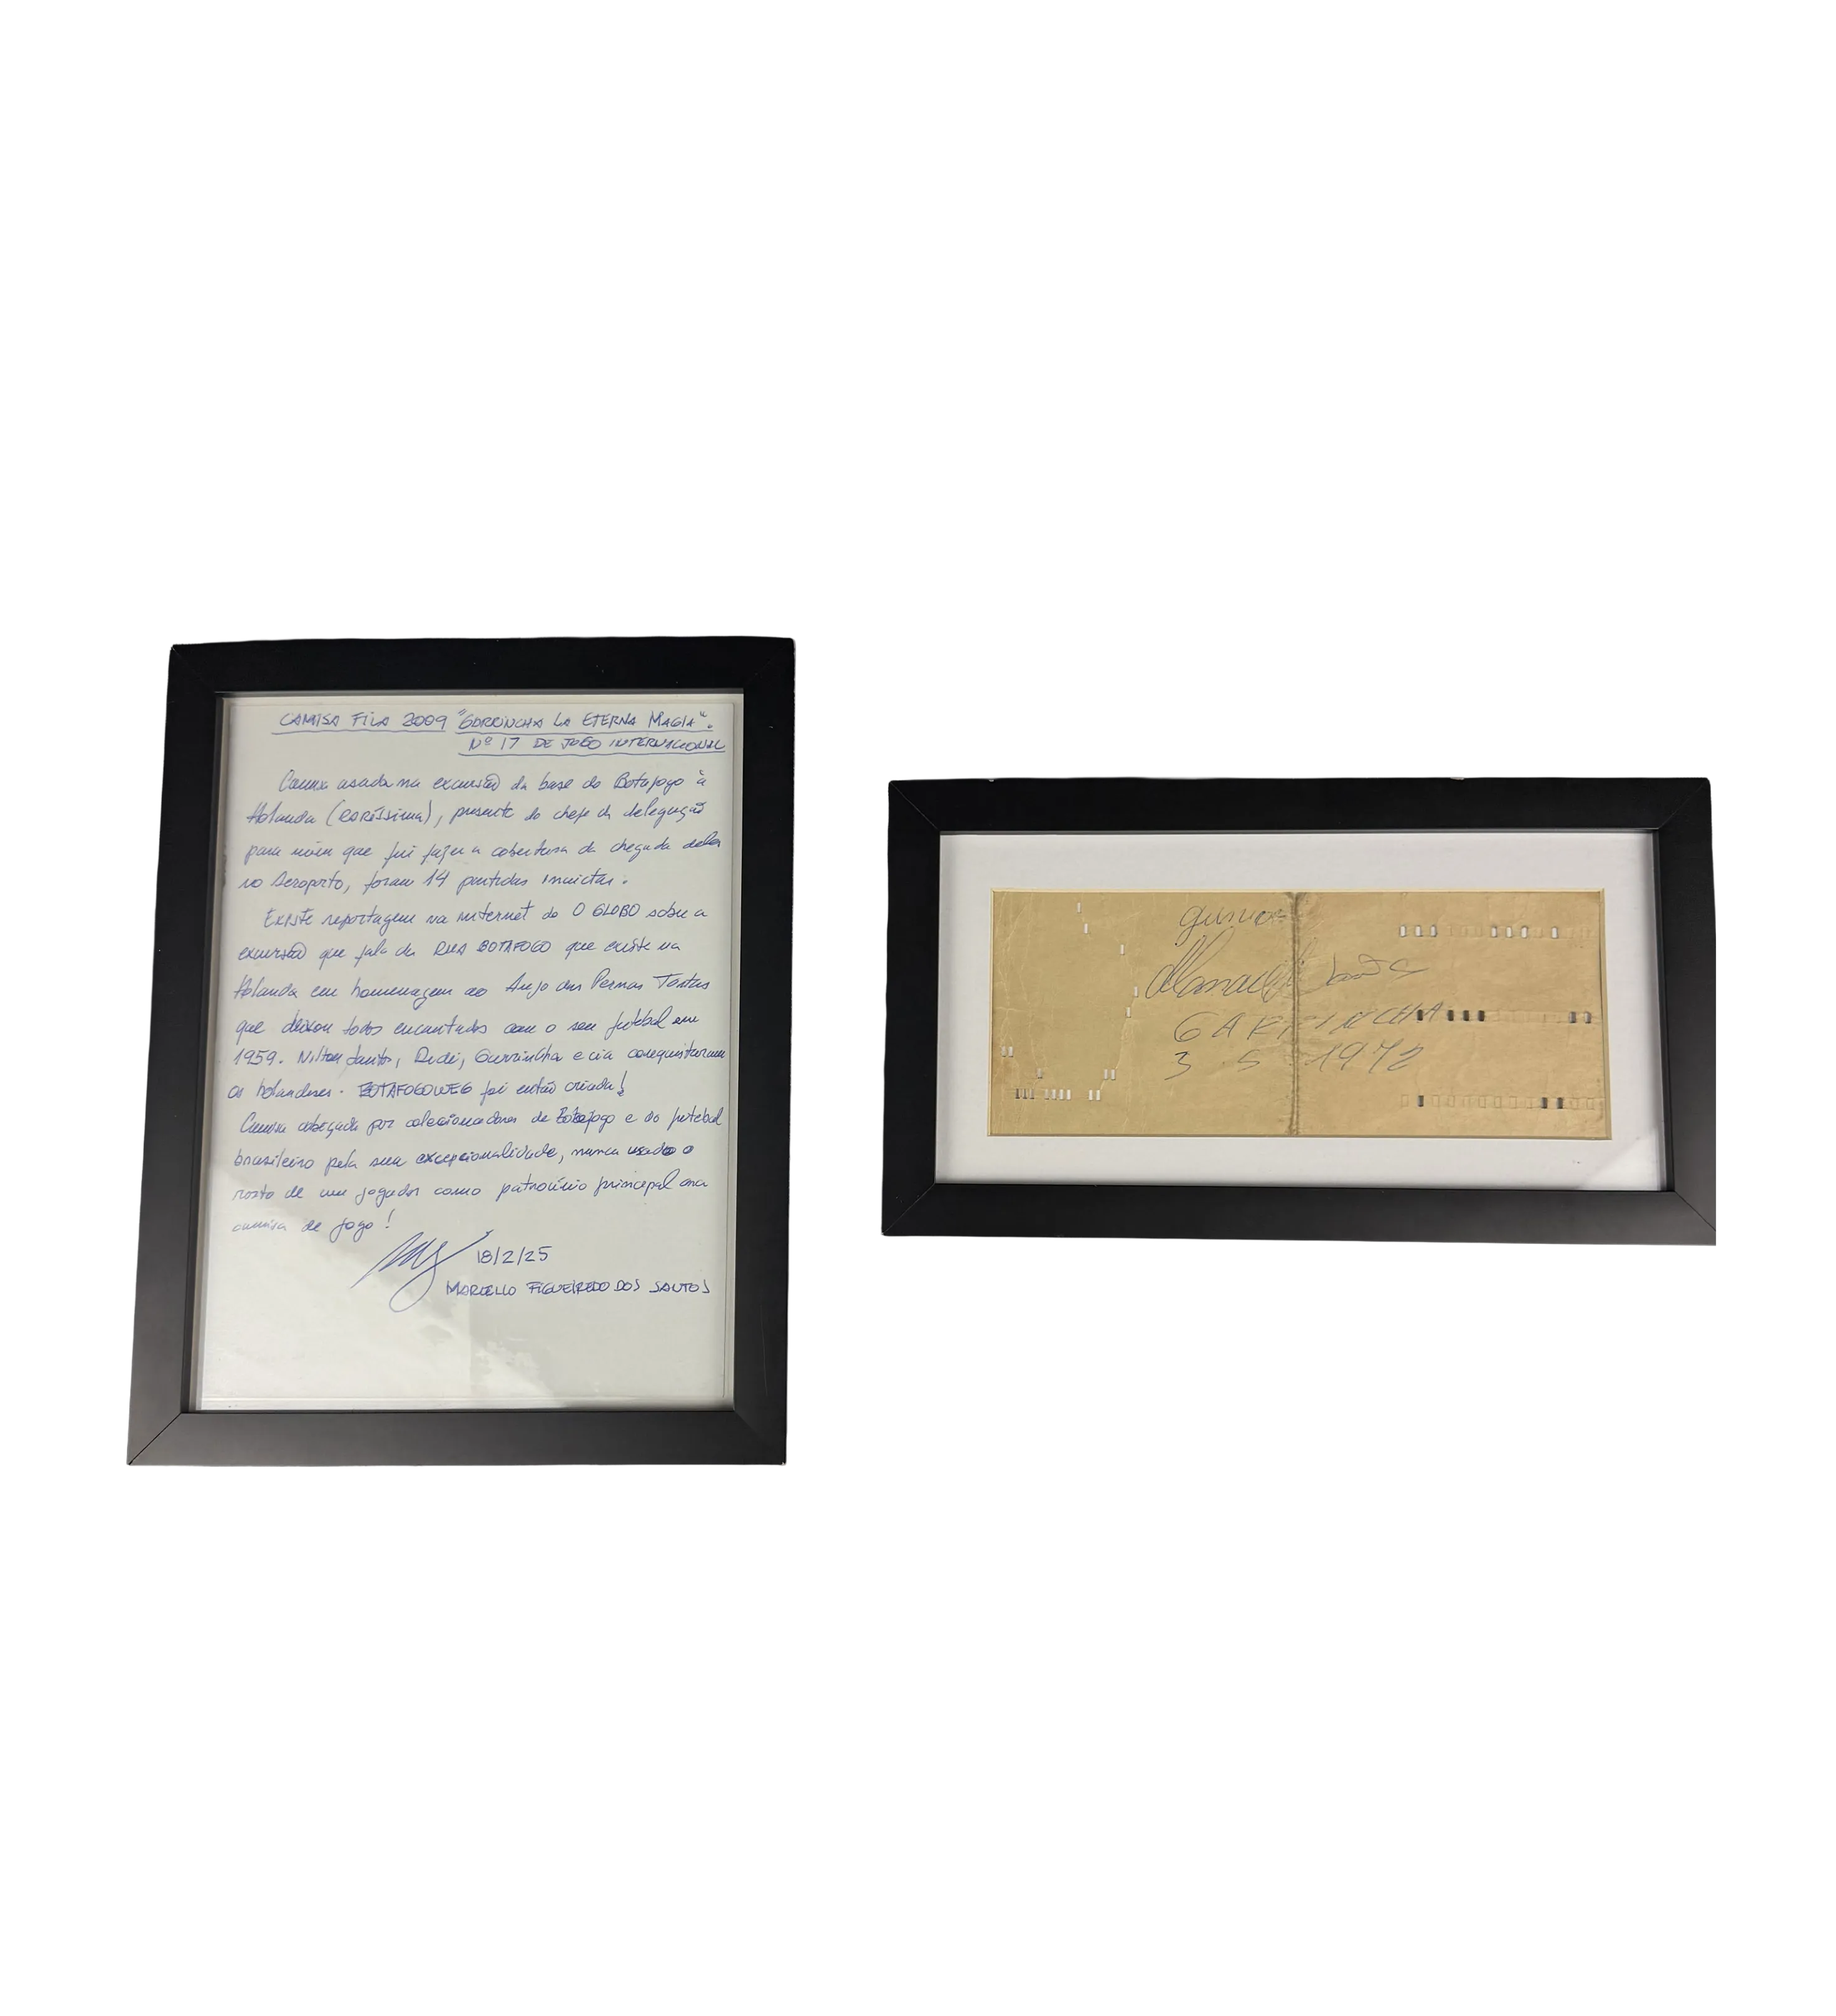 CAMISA FILA 2009 "GARRINCHA LA ETERNA MAGIA".
Nº 17 DE JOGO INTERNACIONAL
Camisa usada na excursão da base do Botafogo à
Holanda (RARÍSSIMA), presente do chefe da delegação
para mim que fui fazer a cobertura da chegada deles
no Aeroporto, foram 14 partidas invictas.
EXISTE reportagem na internet do O GLOBO sobre a
excursão que fala da RUA BOTAFOGO que existe na
Holanda em homenagem ao Anjo das Pernas Tortas
que deixou todos encantados com o seu futebol em
1959. Nilton Santos, Didi, Garrincha e cia conquistaram
os holandeses. BOTAFOGOWEG foi então criada!
Camisa cobiçada por colecionadores de Botafogo e do futebol
brasileiro pela sua excepcionalidade, nunca usado o
rosto de um jogador como patrocínio principal na
camisa de jogo!
18/2/25
MARCELLO FIGUEIREDO DOS SANTOS
Manuel Santos
GARRINCHA
3.5.1972